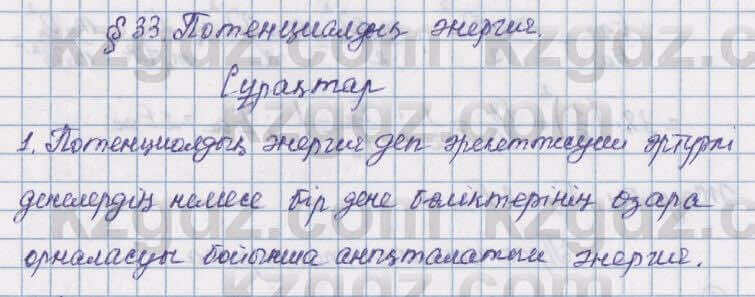 § 33. Потенциалдық энергия.
Сұрақтар
1. Потенциалдық энергия деп әрекеттесуші әртүрлі
денелердің немесе бір дене бөліктерінің өзара
орналасуы бойынша анықталатын энергия.